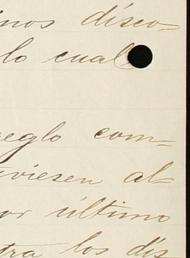 inos disco-
lo cual
reglo com-
uviesen al-
or último
tra los dis